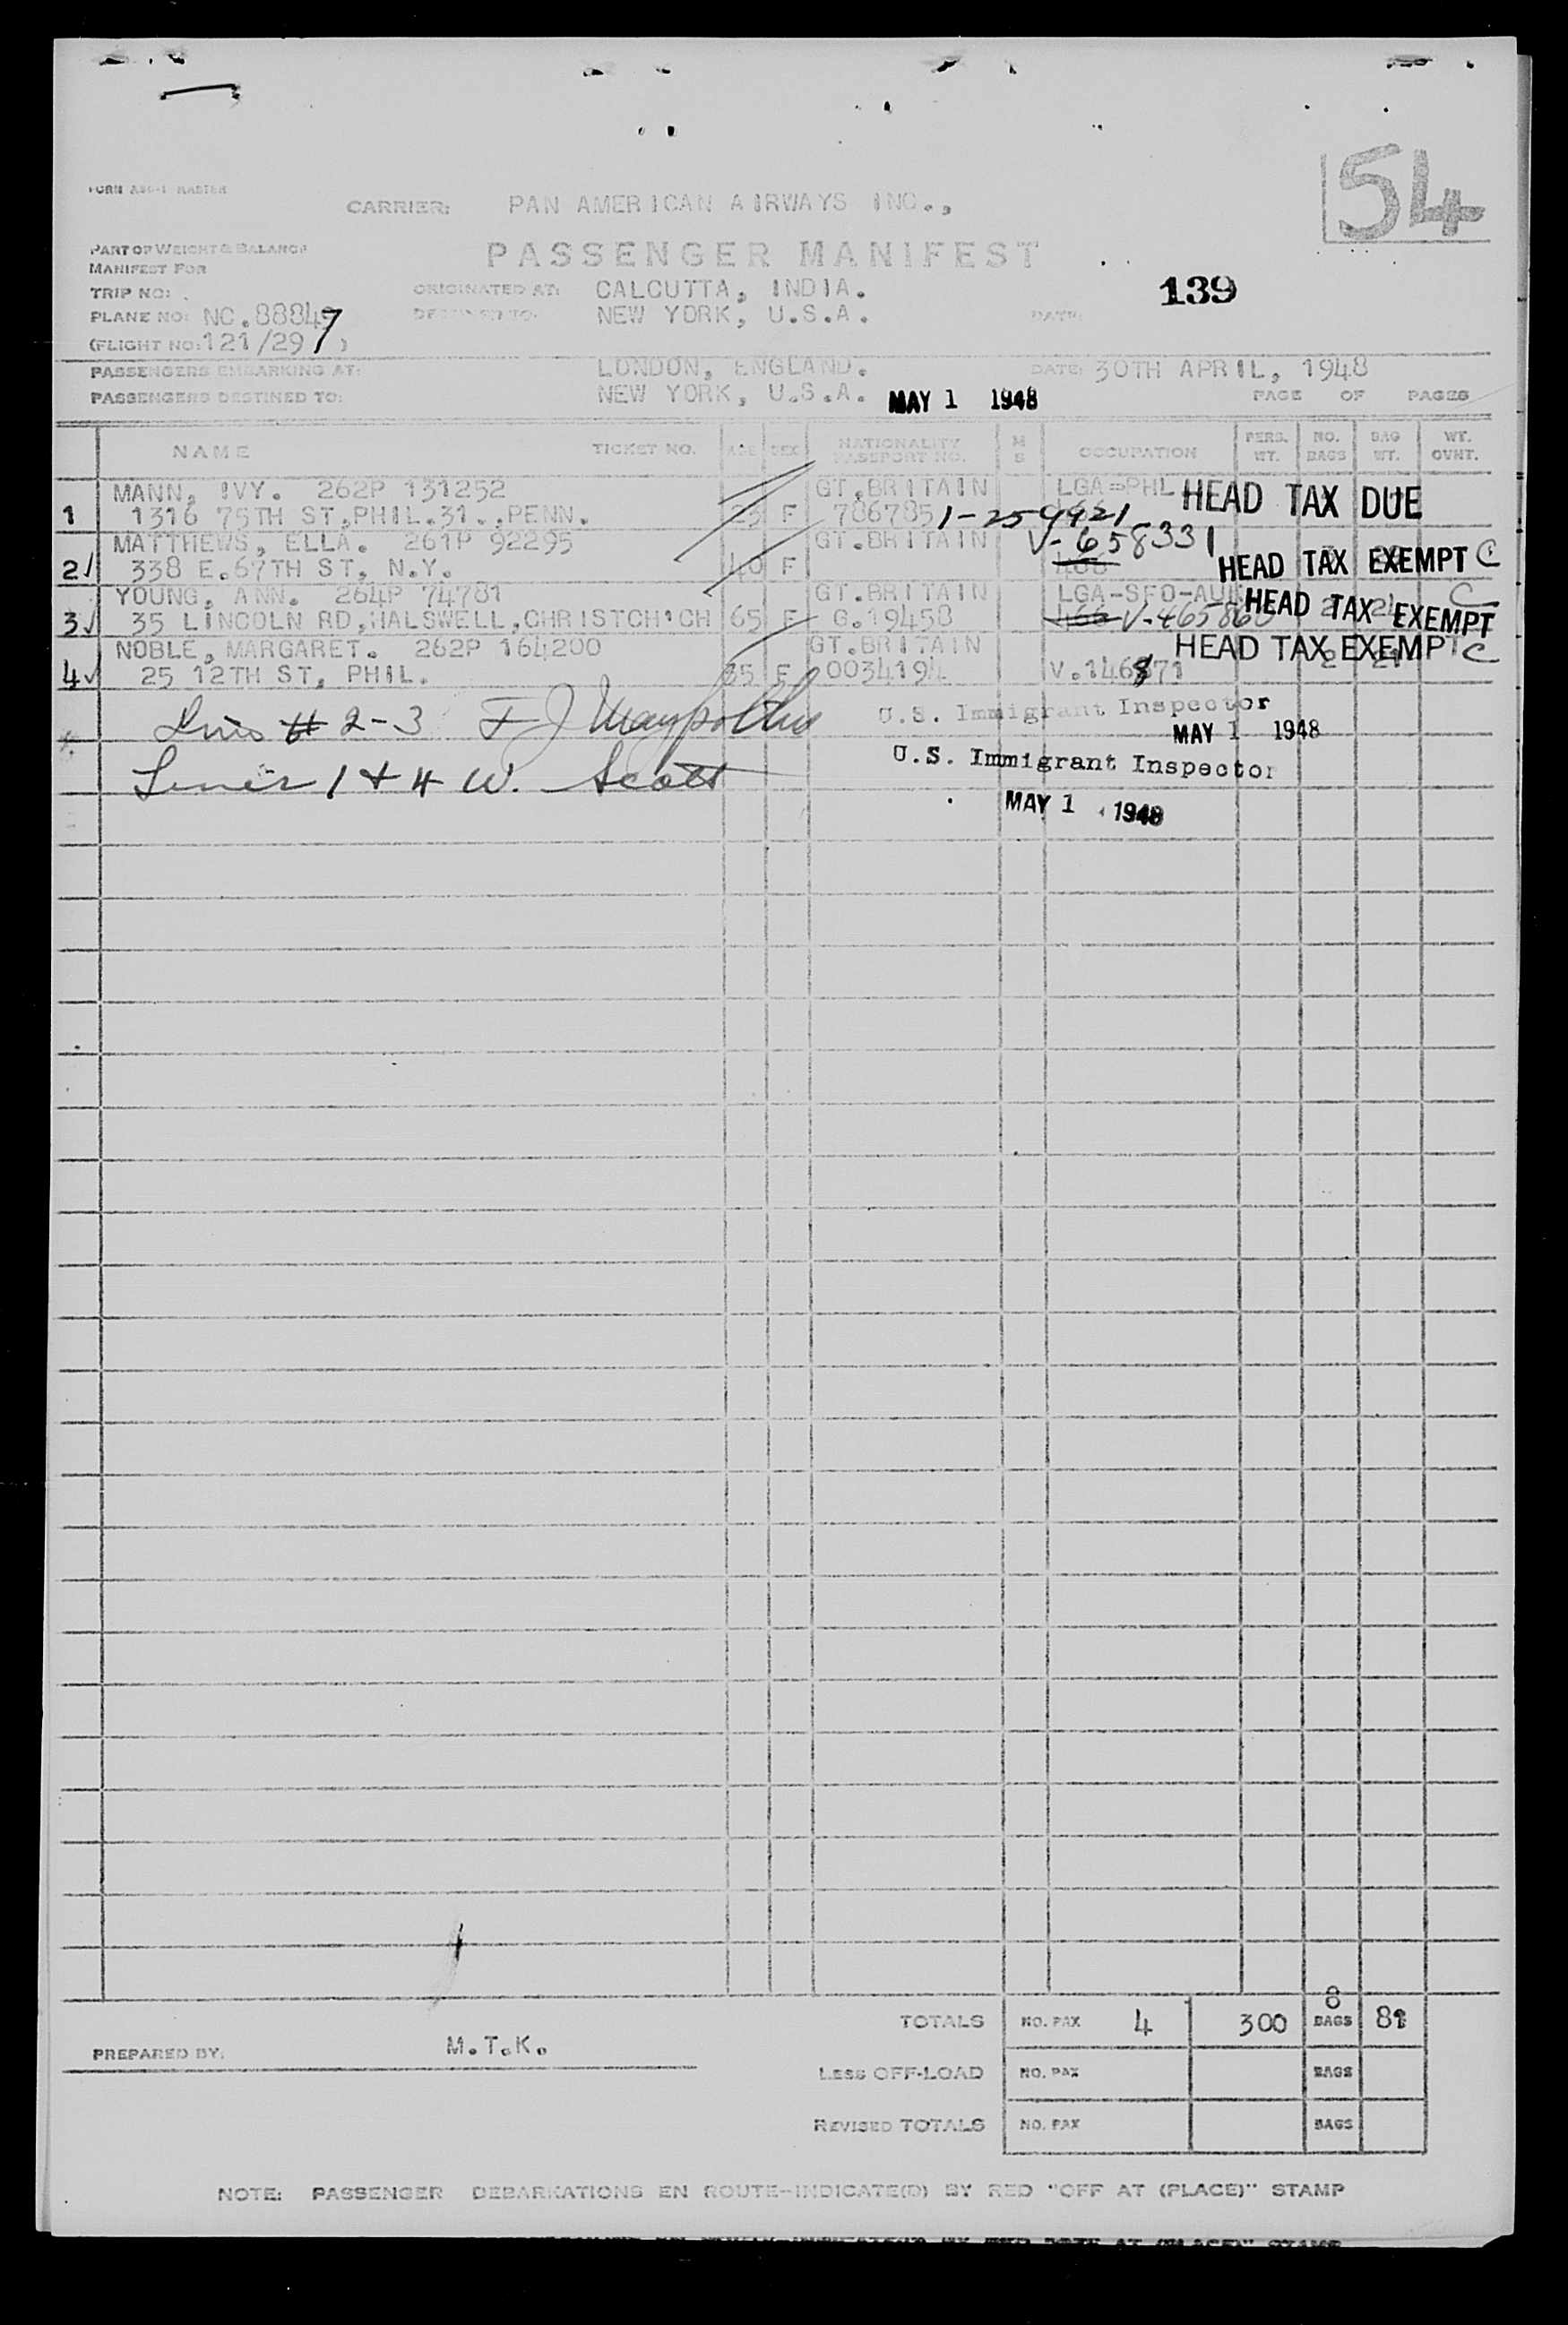 54
CARRIER: PAN AMERICAN AIRWAYS INC.,
PART OF WEIGHT & BALANCE
PASSENGER MANIFEST
MANIFEST FOR
139
TRIP NO:
ORIGINATED AT: CALCUTTA, INDIA.
PLANE NO: NC.88847
NEW YORK, U.S.A.
DATE:
(FLIGHT NO: 121/29 )
PASSENGERS EMBARKING AT: LONDON, ENGLAND. DATE: 30TH APRIL, 1948
PASSENGERS DESTINED TO: NEW YORK, U.S.A. MAY 1 1948 PAGE OF PAGES
NAME TICKET NO. AGE SEX NATIONALITY PASSPORT NO. M S OCCUPATION PERS. WT. NO. BAGS BAG WT. WT. OVHT.
MANN, IVY. 262P 131252 GT.BRITAIN LGA-PHL HEAD TAX DUE
1 1316 75TH ST,PHIL.31.,PENN. F 786785 1-259921
MATTHEWS, ELLA. 261P 92295 GT.BRITAIN V-658331
2✓ 338 E.67TH ST, N.Y. 40 F HEAD TAX EXEMPT C
YOUNG, ANN. 264P 74781 GT.BRITAIN LGA-SFO- HEAD TAX EXEMPT C
3✓ 35 LINCOLN RD,HALSWELL,CHRISTCH'CH 65 F G.19458 V-465860
NOBLE, MARGARET. 262P 164200 GT.BRITAIN HEAD TAX EXEMPT C
4✓ 25 12TH ST, PHIL. 35 F 0034194 V.146871
# 2-3 F J U.S. Immigrant Inspector
MAY 1 1948
1 + 4 W. Scott U.S. Immigrant Inspector
MAY 1 1948
8
TOTALS NO. PAX 4 300 BAGS 81
PREPARED BY: M.T.K.
LESS OFF-LOAD NO. PAX BAGS
REVISED TOTALS NO. PAX BAGS
NOTE: PASSENGER DEBARKATIONS EN ROUTE-INDICATE(D) BY RED "OFF AT (PLACE)" STAMP